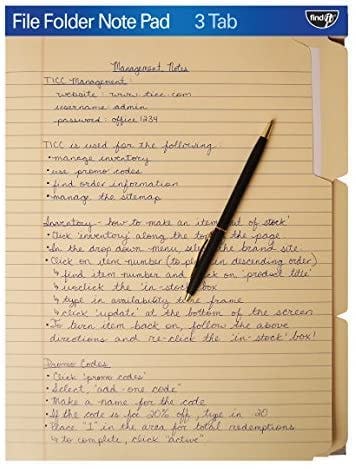 File Folder Note Pad 3 Tab
find It
Management Notes
TICC Management:
website: www.ticc.com
username: admin
password: office1234
TICC is used for the following:
• manage inventory
• use promo codes
• find order information
• manage the sitemap
Inventory - how to make an item 'out of stock'
• Click 'inventory' along the top of the page
• In the drop down menu, select the brand site
• Click on item number (to place in descending order)
↳ find item number and click on 'product title'
↳ unclick the 'in-stock' box
↳ type in availability time frame
↳ click 'update' at the bottom of the screen
• To turn item back on, follow the above
directions and re-click the 'in-stock' box!
Promo Codes
• Click 'promo codes'
• Select, "add-one code"
• Make a name for the code
• If the code is for 20% off, type in 20
• Place "1" in the area for total redemptions
↳ to complete, click "active"